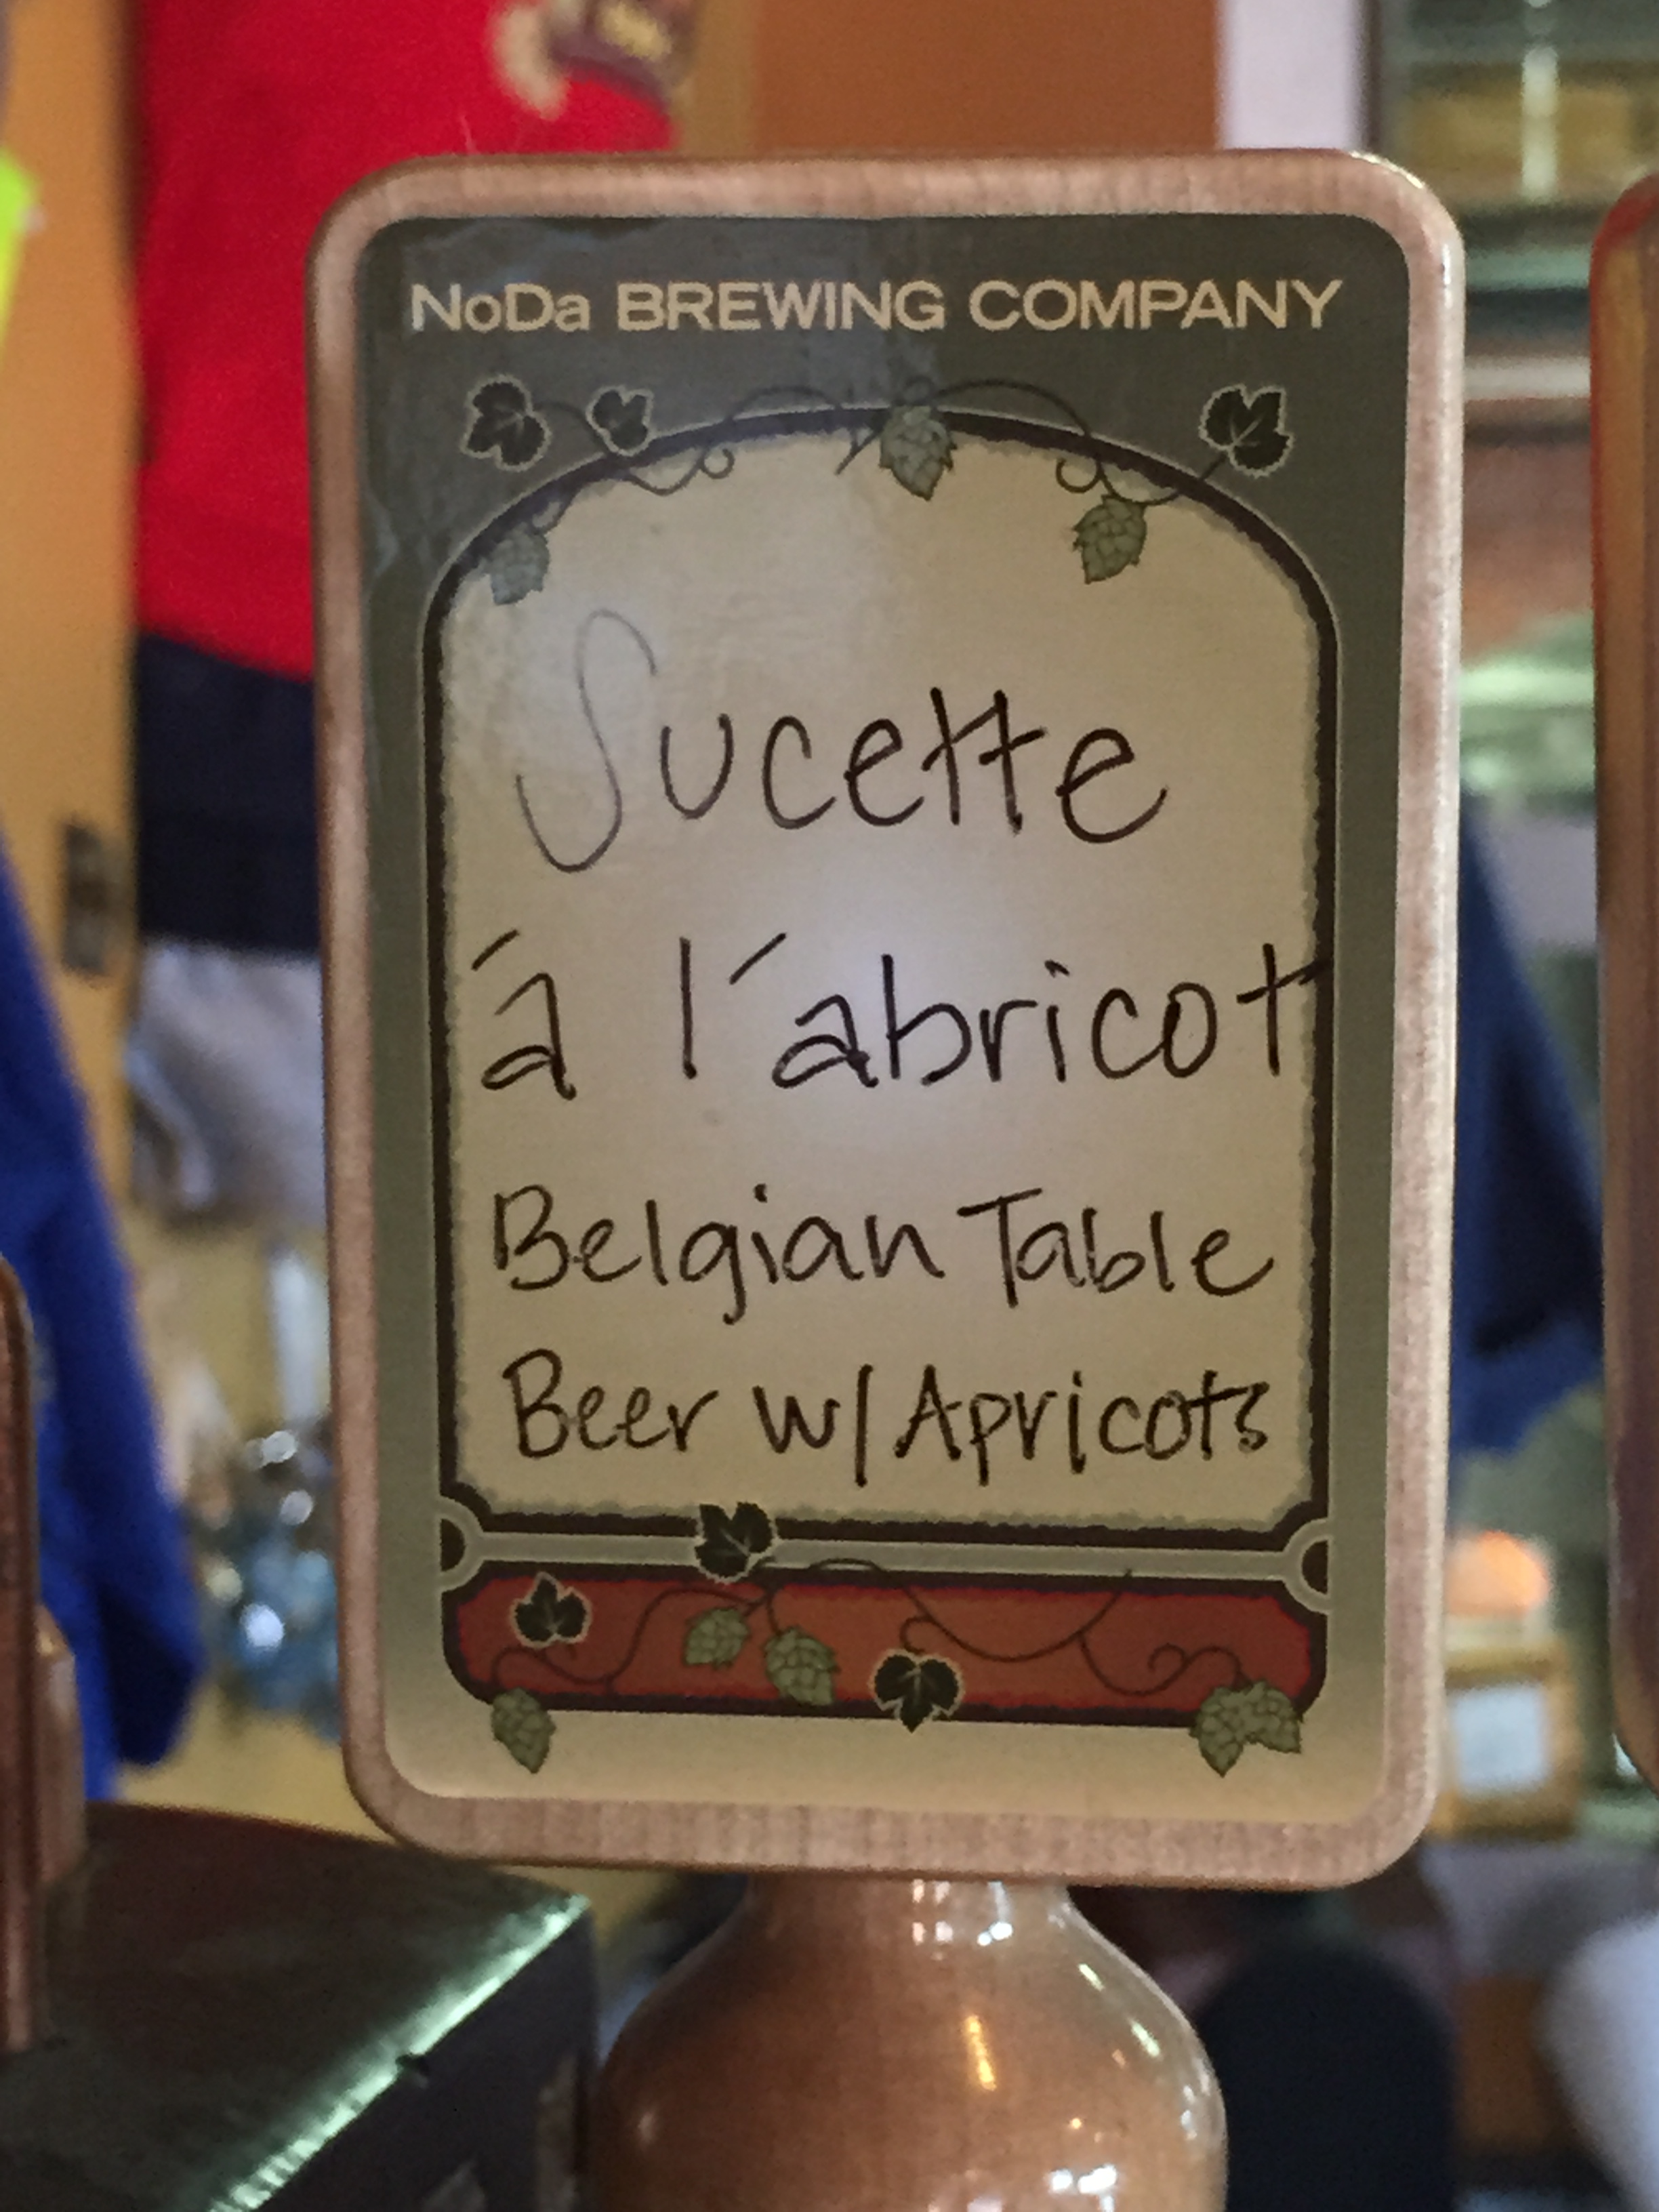 NoDa BREWING COMPANY
Sucette
á l'abricot
Belgian Table
Beer w/ Apricots